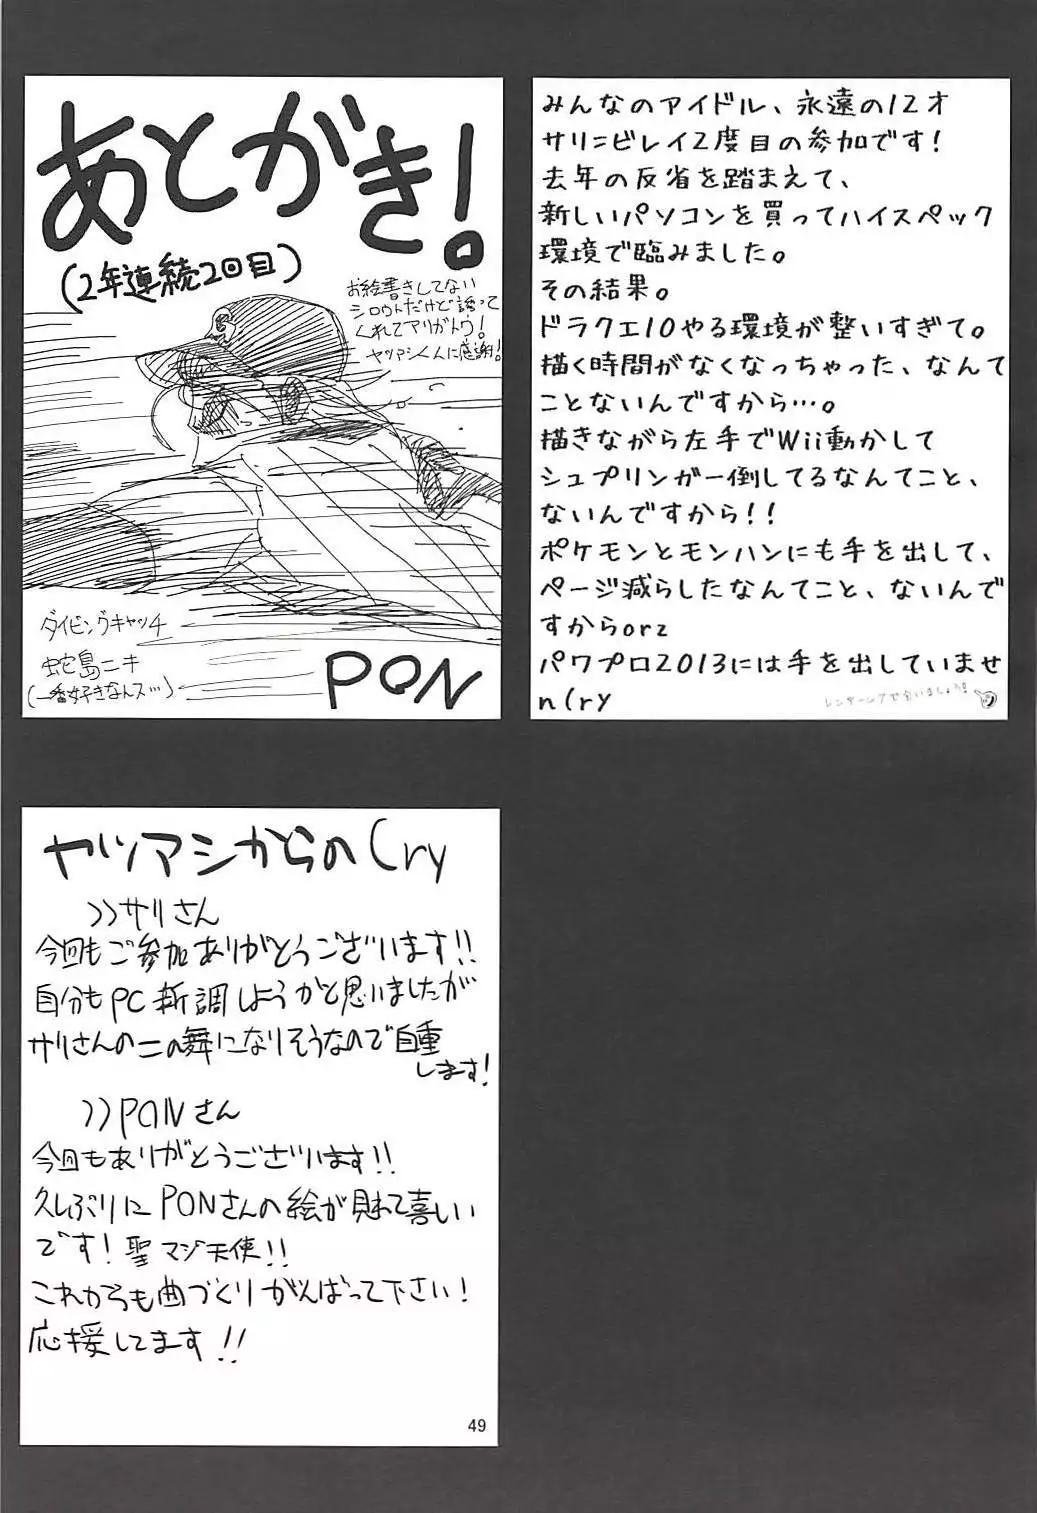 あとがき！
(2年連続2回目)
お絵書きしてない
シロウトだけど誘って
くれてアリガトウ！
ヤツアシくんに感謝！
ダイビングキャッチ
蛇島ニキ
(一番好きなんス…)
PON
みんなのアイドル、永遠の12才
サリ=ビレイ2度目の参加です！
去年の反省を踏まえて、
新しいパソコンを買ってハイスペック
環境で臨みました。
その結果。
ドラクエ10やる環境が整いすぎて。
描く時間がなくなっちゃった、なんて
ことないんですから…。
描きながら左手でWii動かして
シュプリンガー倒してるなんてこと、
ないんですから！！
ポケモンとモンハンにも手を出して、
ページ減らしたなんてこと、ないんで
すからorz
パワプロ2013には手を出していませ
n(ry
ヤツアシからの(ry
>>サリさん
今回もご参加ありがとうございます!!
自分もPC新調しようかと思いましたが
サリさんの二の舞になりそうなので自重
します！
>>PONさん
今回もありがとうございます!!
久しぶりにPONさんの絵が見れて喜しい
です！聖マジ天使!!
これからも曲づくりがんばって下さい！
応援してます!!
49